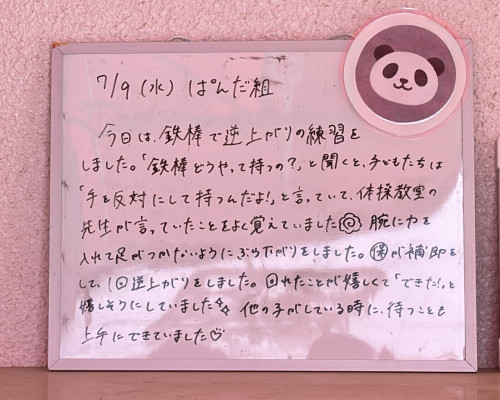 7/9（水） ぱんだ組
今日は、鉄棒で逆上がりの練習を
しました。「鉄棒どうやって持つの？」と聞くと、子どもたちは
「手を反対にして持つんだよ！」と言っていて、体操教室の
先生が言っていたことをよく覚えていました 腕に力を
入れて足がつかないようにぶら下がりをしました。㋭が補助を
して、1回逆上がりをしました。回れたことが嬉しくて「できた！」と
嬉しそうにしていました 他の子がしている時に、待つことも
上手にできていました♡